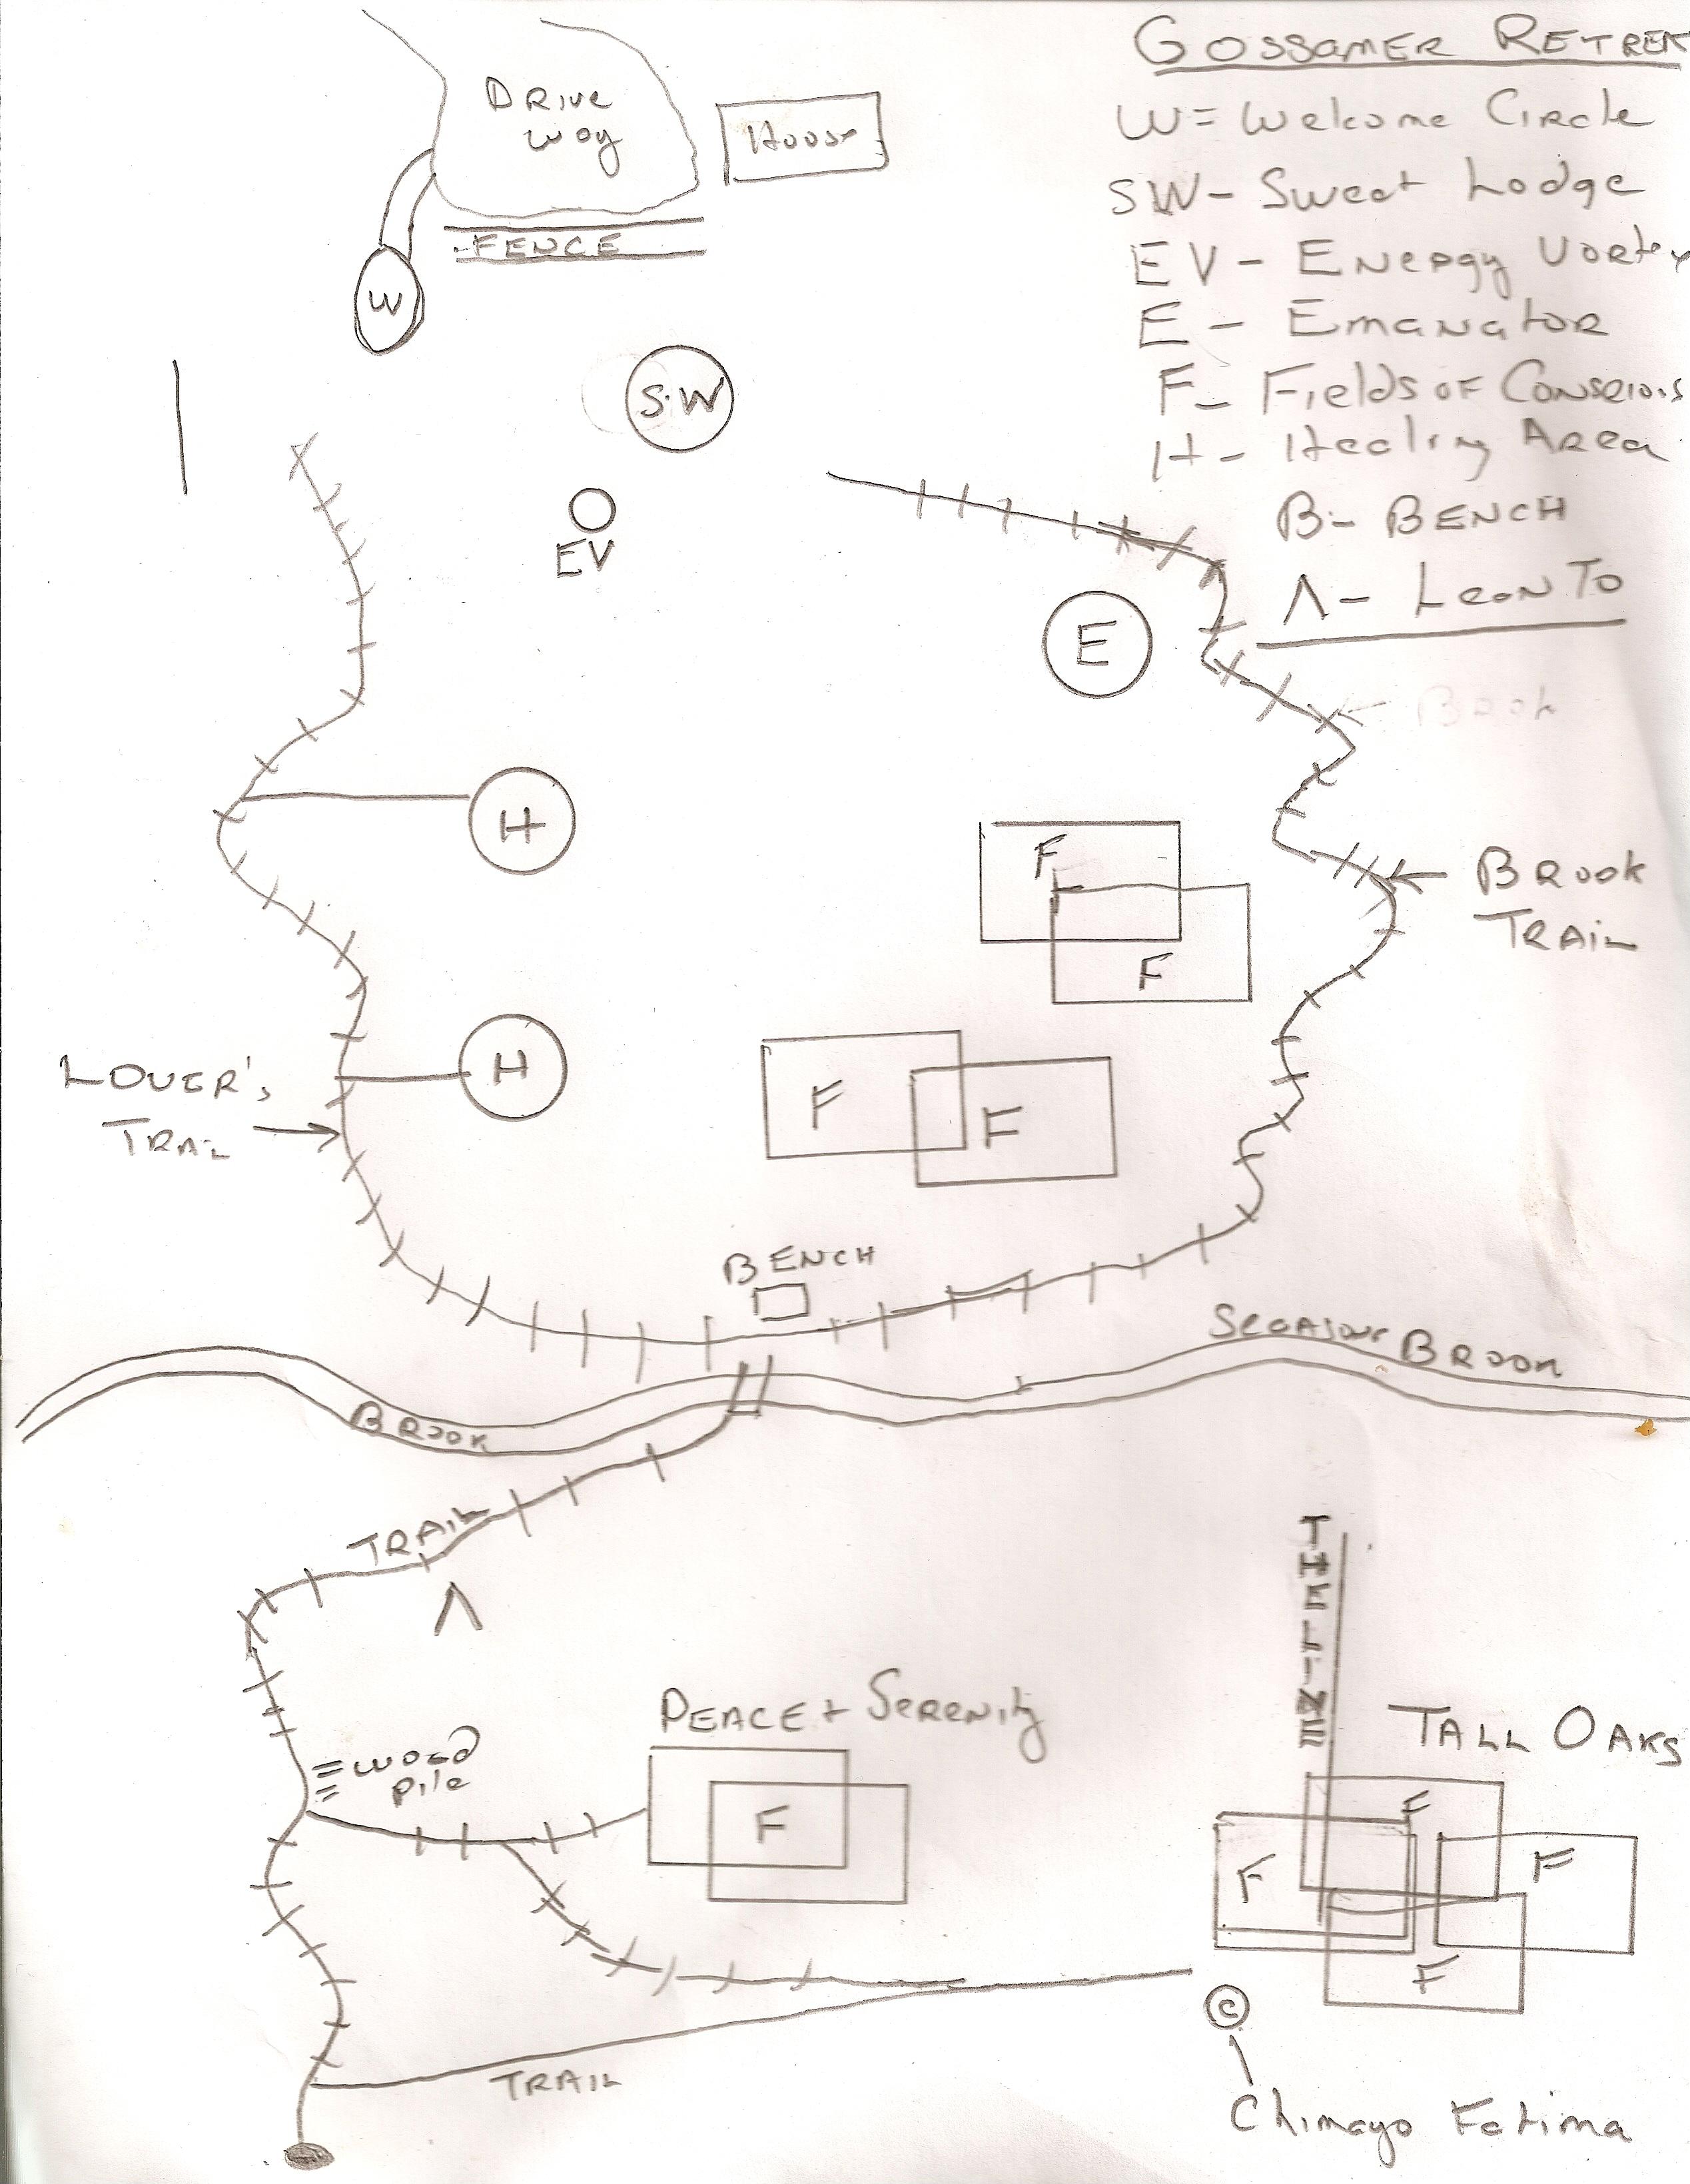 GOSSAMER RETREAT
W = Welcome Circle
SW - Sweat Lodge
EV - Energy Vortex
E - Emanator
F - Fields of Conscious
H - Healing Area
B - BENCH
Λ - Lean To
Drive
way
House
FENCE
W
S.W
EV
E
Brook
H
F
F
BROOK
TRAIL
H
LOVER'S
TRAIL
F
F
BENCH
BROOK
BROOK
TRAIL
Λ
THE LINE
PEACE + Serenity
TALL OAKS
wood
pile
F
F
F
F
F
C
TRAIL
Chimayo Fatima